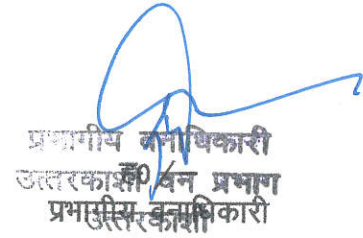 प्रभागीय वनाधिकारी
उत्तरकाशी वन प्रभाग
ह0/
प्रभागीय वनाधिकारी
उत्तरकाशी